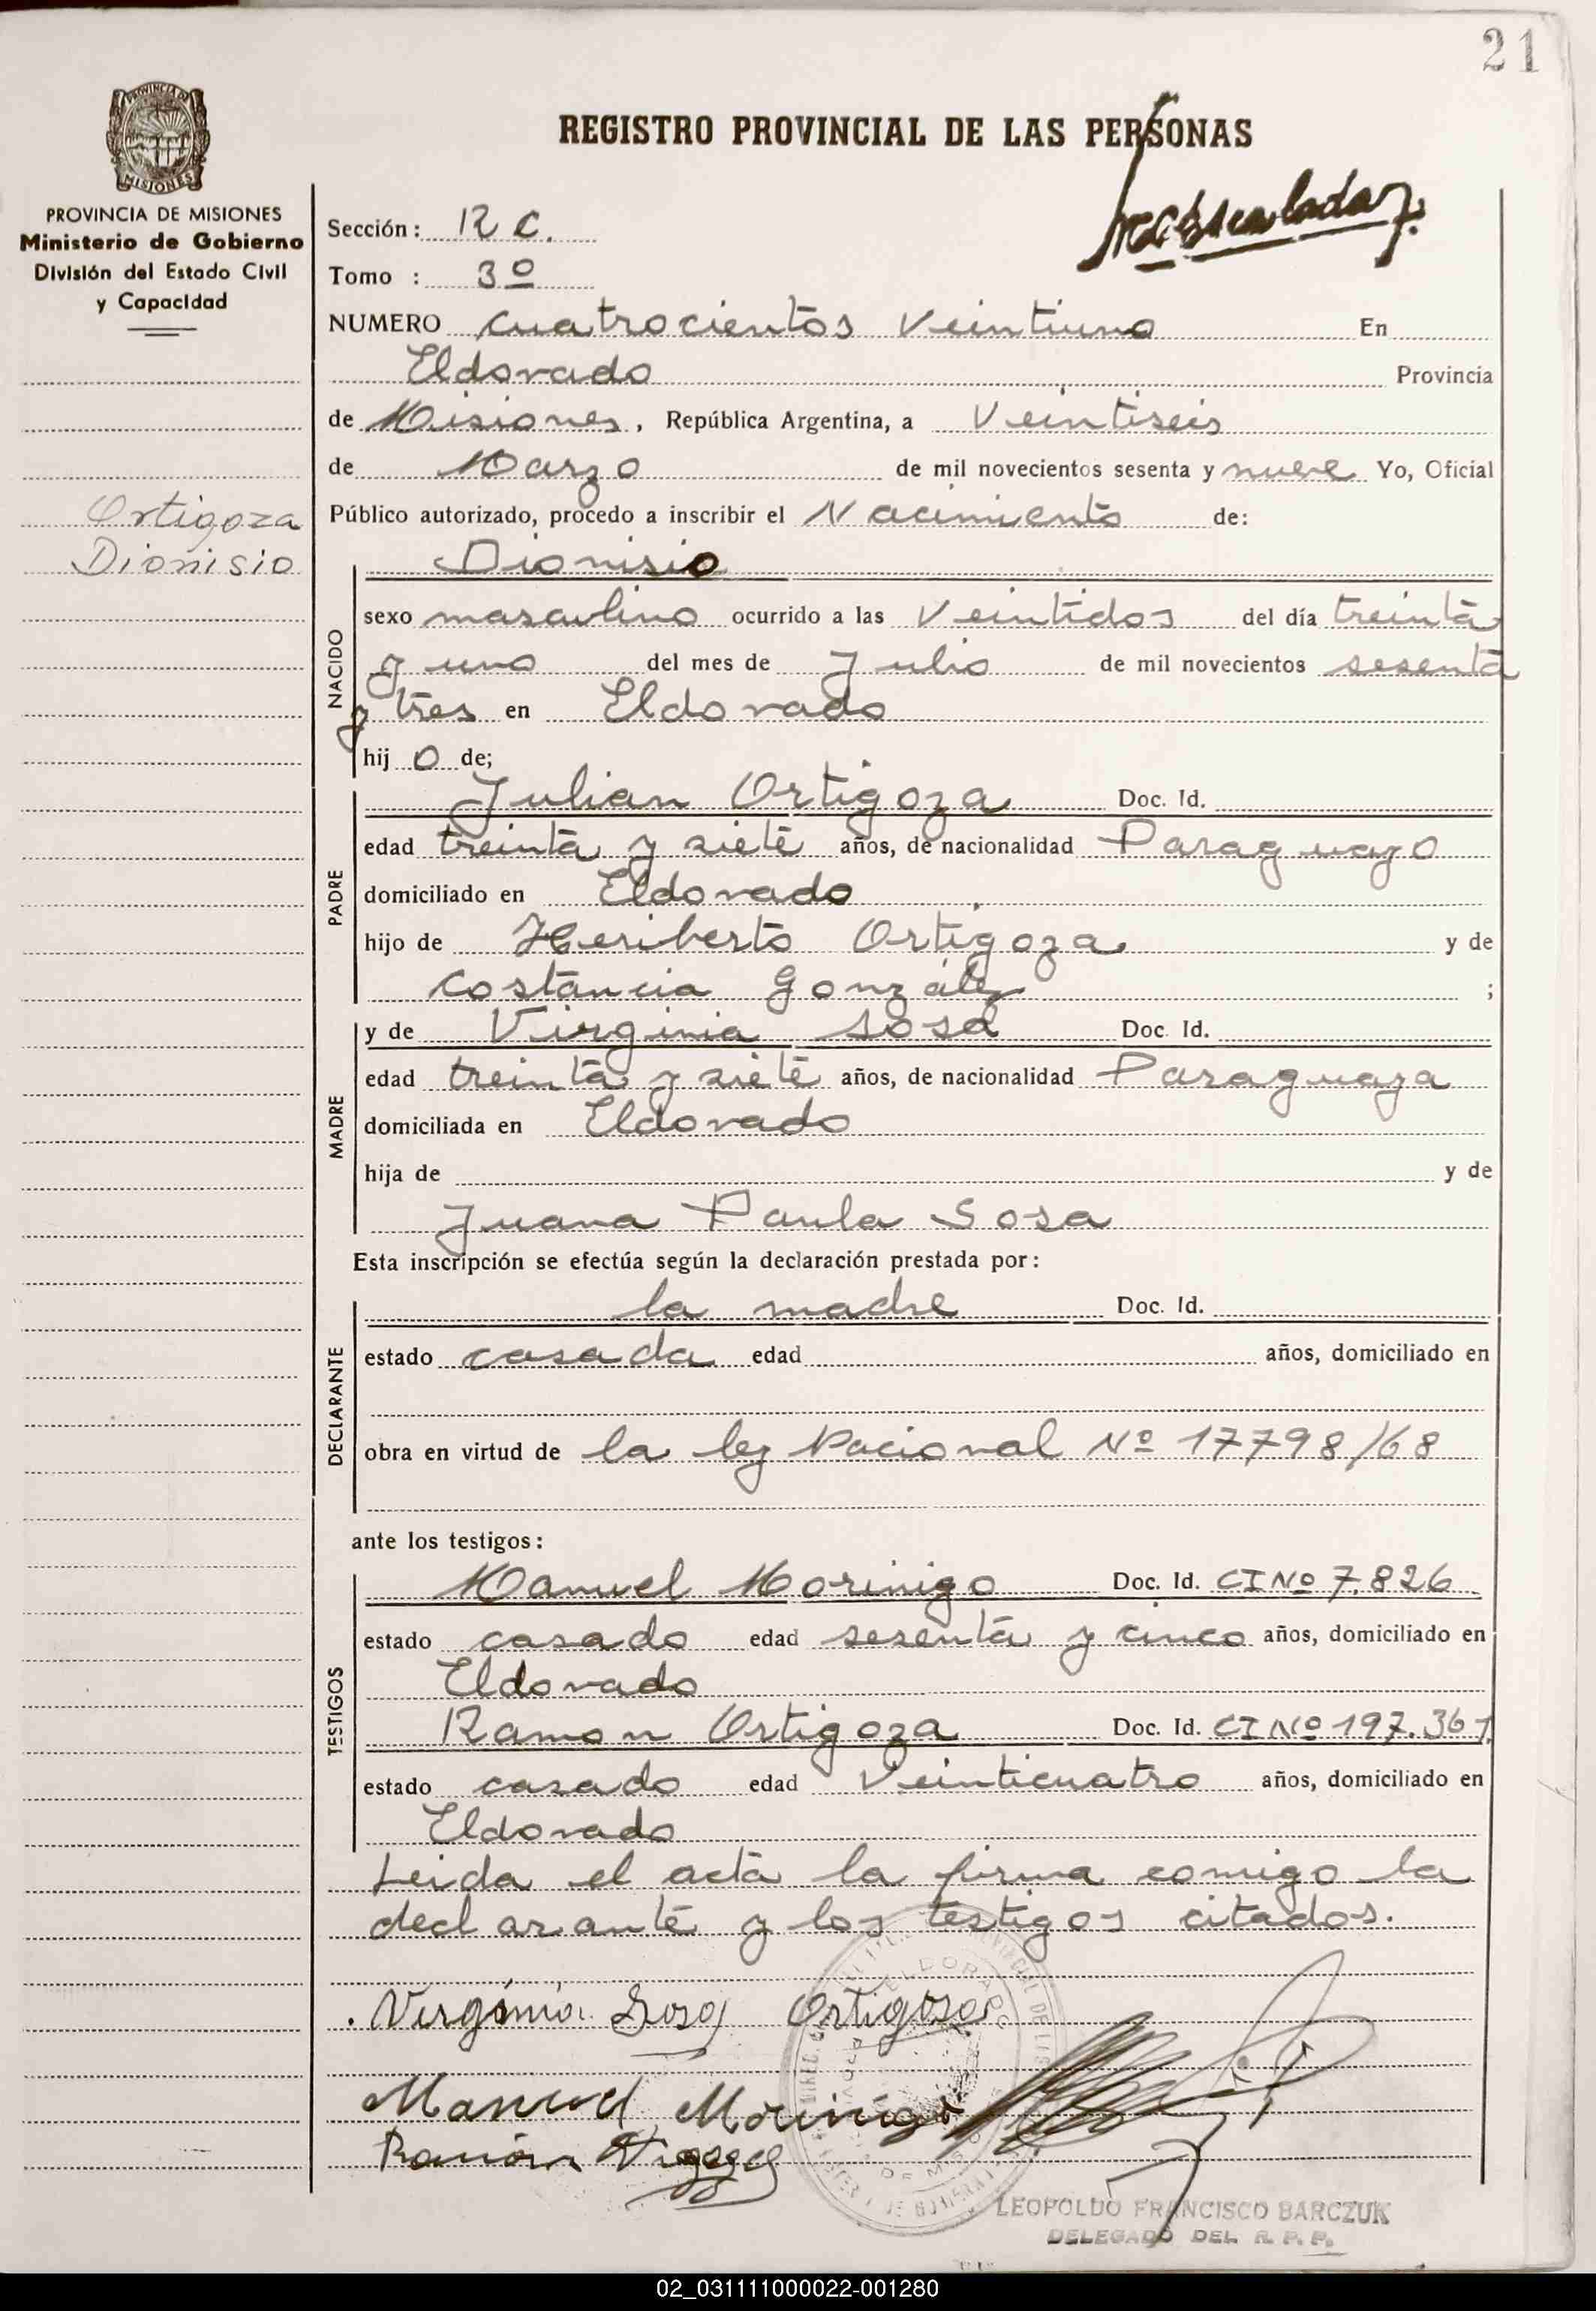 21
REGISTRO PROVINCIAL DE LAS PERSONAS
PROVINCIA DE MISIONES
Ministerio de Gobierno
División del Estado Civil
y Capacidad
Sección: R C.
Tomo : 3º
NUMERO cuatrocientos veintiuno En
Eldorado Provincia
de Misiones, República Argentina, a Veintiseis
de Marzo de mil novecientos sesenta y nueve Yo, Oficial
Público autorizado, procedo a inscribir el Nacimiento de:
Ortigoza
Dionisio
NACIDO
Dionisio
sexo masculino ocurrido a las Veintidos del día treinta
y uno del mes de Julio de mil novecientos sesenta
y tres en Eldorado
hij o de;
PADRE
Julian Ortigoza Doc. Id.
edad treinta y siete años, de nacionalidad Paraguayo
domiciliado en Eldorado
hijo de Heriberto Ortigoza y de
Costancia González ;
MADRE
y de Virginia Sosa Doc. Id.
edad treinta y siete años, de nacionalidad Paraguaya
domiciliada en Eldorado
hija de y de
Juana Paula Sosa
Esta inscripción se efectúa según la declaración prestada por:
DECLARANTE
la madre Doc. Id.
estado casada edad años, domiciliado en
obra en virtud de la ley Nacional Nº 17798/68
ante los testigos:
TESTIGOS
Manuel Morinigo Doc. Id. CI Nº 7.826
estado casado edad sesenta y cinco años, domiciliado en
Eldorado
Ramon Ortigoza Doc. Id. CI Nº 197.361
estado casado edad Veinticuatro años, domiciliado en
Eldorado
Leida el acta la firma comigo la
declarante y los testigos citados.
Virginia Sosa Ortigosa
Manuel Morinigo
Ramón
LEOPOLDO FRANCISCO BARCZUK
DELEGADO DEL R. P. P.
02_031111000022-001280